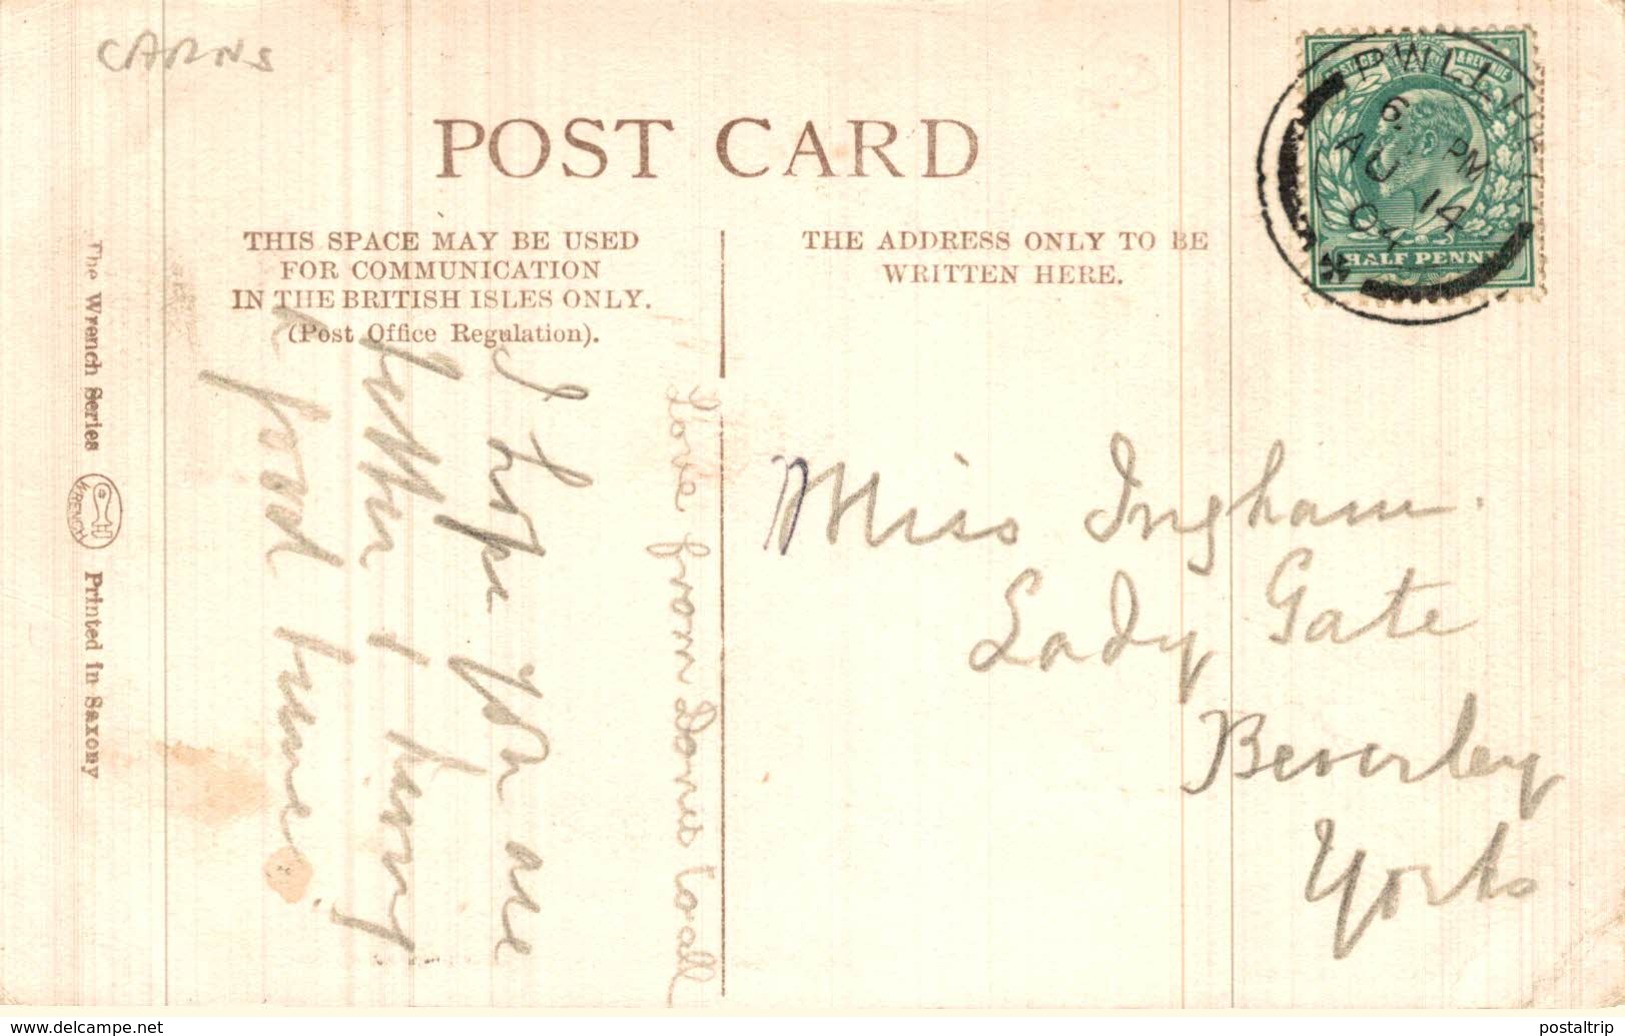 CARNS
POST CARD
THIS SPACE MAY BE USED
FOR COMMUNICATION
IN THE BRITISH ISLES ONLY.
(Post Office Regulation).
THE ADDRESS ONLY TO BE
WRITTEN HERE.
POSTAGE & REVENUE
HALF PENNY
PWLLHELI
6 PM
AU 14
04
I hope you are
better & having
a good time.
Love from Doris to all
Miss Ingham.
Lady Gate
Beverley
Yorks
The Wrench Series
WRENCH
Printed in Saxony
www.delcampe.net
postaltrip